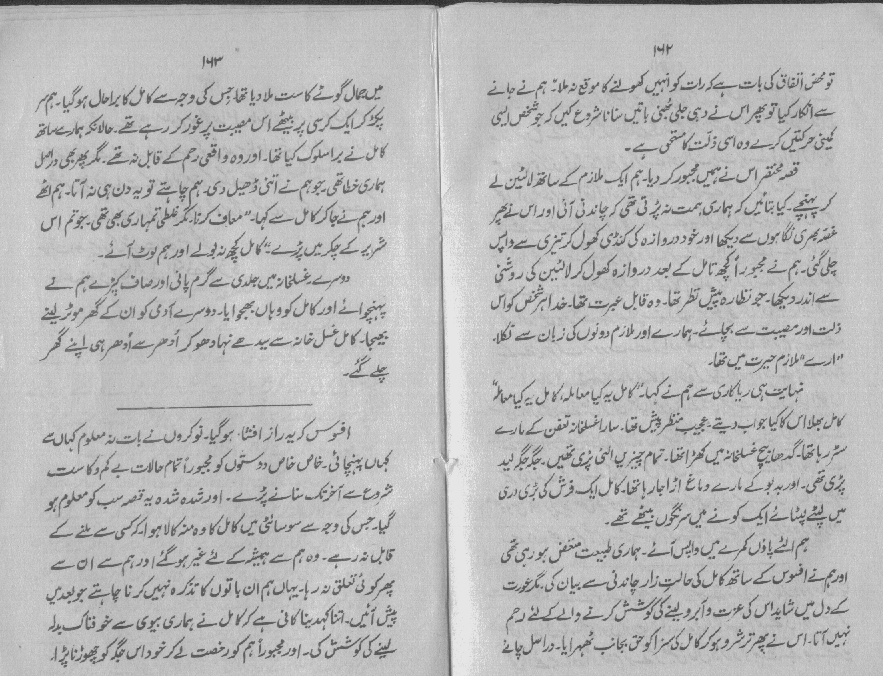 ۱۶۲
تو محض اتفاق کی بات ہے کہ رات کو انہیں کھولنے کا موقع نہ ملا۔" ہم نے جانے
سے انکار کیا تو پھر اس نے وہی جلی بھنی باتیں سنانا شروع کیں کہ جو شخص ایسی
کمینی حرکتیں کرے وہ اسی ذلت کا مستحق ہے۔
قصہ مختصر اس نے ہمیں مجبور کر دیا۔ ہم ایک ملازم کے ساتھ لالٹین لے
کر پہنچے۔ کیا بتائیں کہ ہماری ہمت نہ پڑتی تھی کہ چاندنی آئی اور اس نے پھر
غصہ بھری نگاہوں سے دیکھا اور خود دروازہ کی کنڈی کھول کر تیزی سے واپس
چلی گئی۔ ہم نے مجبوراً کچھ تامل کے بعد دروازہ کھول کر لالٹین کی روشنی
سے اندر دیکھا۔ جو نظارہ پیش نظر تھا۔ وہ قابل عبرت تھا۔ خدا ہر شخص کو اس
ذلت اور مصیبت سے بچائے۔ ہمارے اور ملازم دونوں کی زبان سے نکلا۔
"ارے" ملازم حیرت میں تھا۔
نہایت ہی ریاکاری سے ہم نے کہا۔ "کامل یہ کیا معاملہ، کامل یہ کیا معاملہ"
کامل بھلا اس کا کیا جواب دیتے۔ عجیب منظر پیش تھا۔ سارا غسلخانہ تعفن کے مارے
سڑ رہا تھا۔ گدھا بیچ غسلخانہ میں کھڑا تھا۔ تمام چیزیں الٹی پڑی تھیں۔ جگہ جگہ لید
پڑی تھی۔ اور بدبو کے مارے دماغ اڑا جا رہا تھا۔ کامل ایک فرش کی بڑی دری
میں لپٹے لپٹائے ایک کونے میں سرنگوں بیٹھے تھے۔
ہم الٹے پاؤں کمرے میں واپس آئے۔ ہماری طبیعت منغض ہو رہی تھی
اور ہم نے افسوس کے ساتھ کامل کی حالت زار چاندنی سے بیان کی۔ مگر عورت
کے دل میں شاید اس کی عزت و آبرو لینے کی کوشش کرنے والے کے لئے رحم
نہیں آتا۔ اس نے پھر ترشرو ہو کر کامل کی سزا کو حق بجانب ٹھہرایا۔ دراصل چائے
۱۶۳
میں جمال گوٹے کا ست ملا دیا تھا۔ جس کی وجہ سے کامل کا برا حال ہو گیا۔ ہم سر
پکڑ کر ایک کرسی پر بیٹھے اس مصیبت پر غور کر رہے تھے۔ حالانکہ ہمارے ساتھ
کامل نے برا سلوک کیا تھا۔ اور وہ واقعی رحم کے قابل نہ تھے۔ مگر پھر بھی دراصل
ہماری خطا تھی۔ جو ہم نے اتنی ڈھیل دی۔ ہم چاہتے تو یہ دن ہی نہ آتا۔ ہم اٹھے
اور ہم نے جا کر کامل سے کہا۔ "معاف کرنا۔ مگر غلطی تمہاری بھی تھی۔ جو تم اس
شریر کے چکر میں پڑے۔" کامل کچھ نہ بولے اور ہم لوٹ آئے۔
دوسرے غسلخانہ میں جلدی سے گرم پانی اور صاف کپڑے ہم نے
پہنچوائے اور کامل کو وہاں بھجوایا۔ دوسرے آدمی کو ان کے گھر موٹر لینے
بھیجا۔ کامل غسل خانہ سے سیدھے نہا دھو کر اُدھر سے اُدھر ہی اپنے گھر
چلے گئے۔
افسوس کہ یہ راز افشاء ہو گیا۔ نوکروں نے بات نہ معلوم کہاں سے
کہاں پہنچائی۔ خاص خاص دوستوں کو مجبوراً تمام حالات بے کم و کاست
شروع سے آخر تک سنانے پڑے۔ اور شدہ شدہ یہ قصہ سب کو معلوم ہو
گیا۔ جس کی وجہ سے سوسائٹی میں کامل کا وہ منہ کالا ہوا کہ کسی سے ملنے کے
قابل نہ رہے۔ وہ ہم سے ہمیشہ کے لئے غیر ہو گئے اور ہم سے ان سے
پھر کوئی تعلق نہ رہا۔ یہاں ہم ان باتوں کا تذکرہ نہیں کرنا چاہتے جو بعد میں
پیش آئیں۔ اتنا کہہ دینا کافی ہے کہ کامل نے ہماری بیوی سے خوفناک بدلہ
لینے کی کوشش کی۔ اور مجبوراً ہم کو رخصت لے کر خود اس جگہ کو چھوڑنا پڑا۔